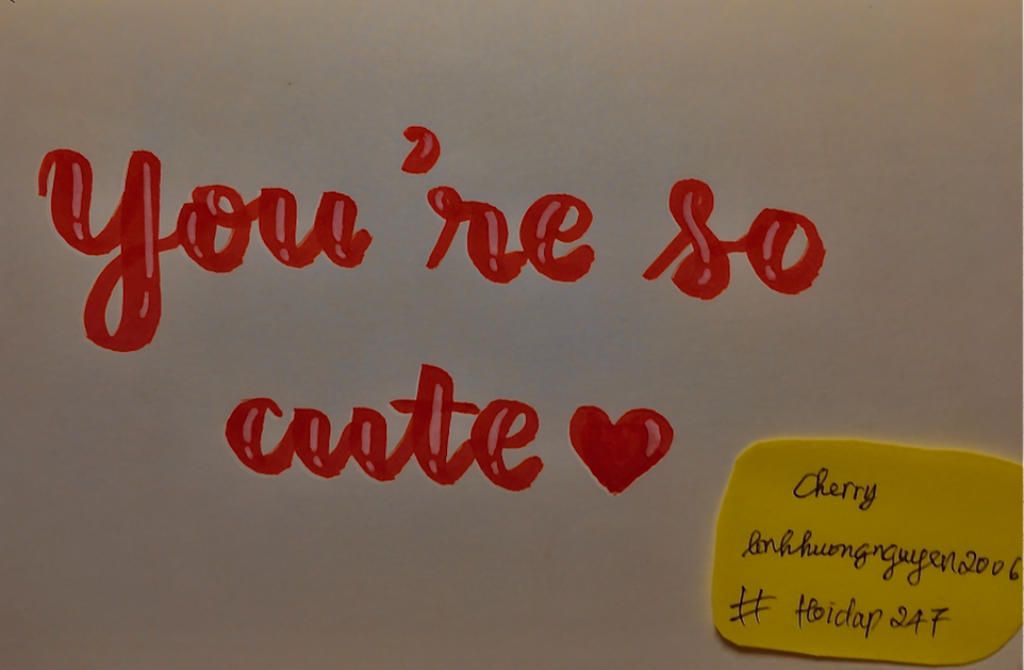 You're so
cute
Cherry
linhhuongnguyen2006
# Hoidap 247